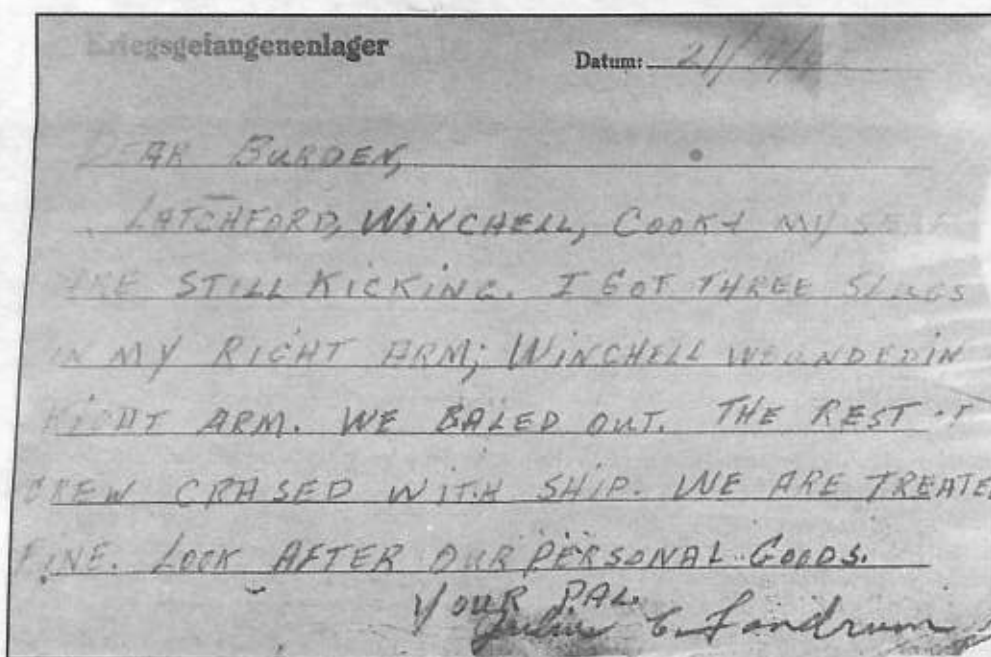 Kriegsgefangenenlager Datum: 21/
DEAR BURDEN,
LATCHFORD, WINCHELL, COOK & MY SELF
ARE STILL KICKING. I GOT THREE SLUGS
IN MY RIGHT ARM; WINCHELL WOUNDED IN
RIGHT ARM. WE BALED OUT. THE REST OF
CREW CRASED WITH SHIP. WE ARE TREATED
FINE. LOOK AFTER OUR PERSONAL GOODS.
YOUR PAL.
Julius C. Landrum